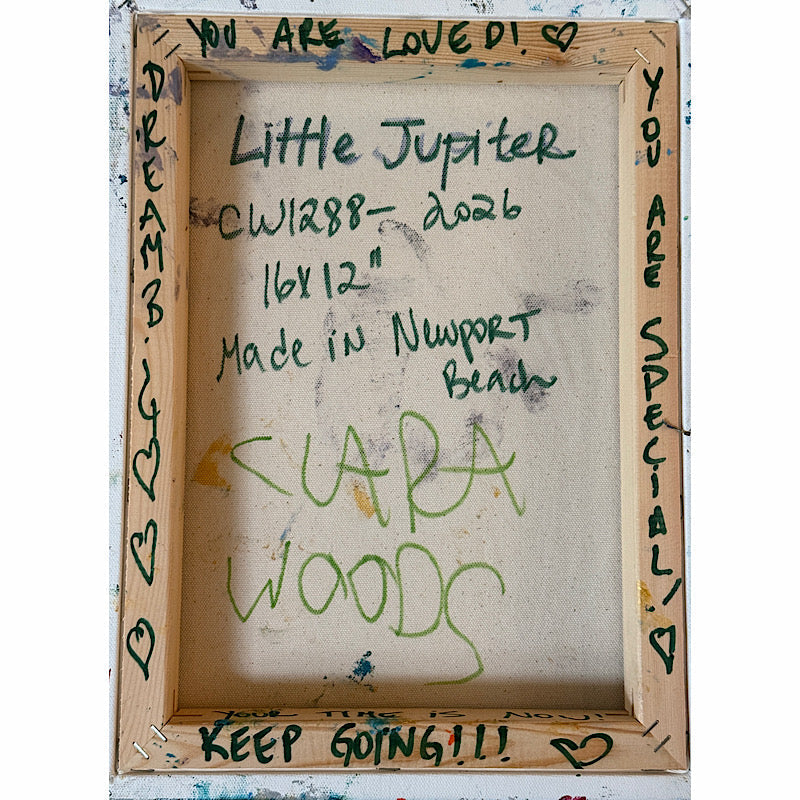 YOU ARE LOVED! ♡
DREAM BIG ♡ ♡ ♡
Little Jupiter
CW1288- 2026
16x12"
Made in Newport
Beach
CLARA
WOODS
YOU ARE SPECIAL! ♡
- YOUR TIME IS NOW! -
KEEP GOING!!! ♡